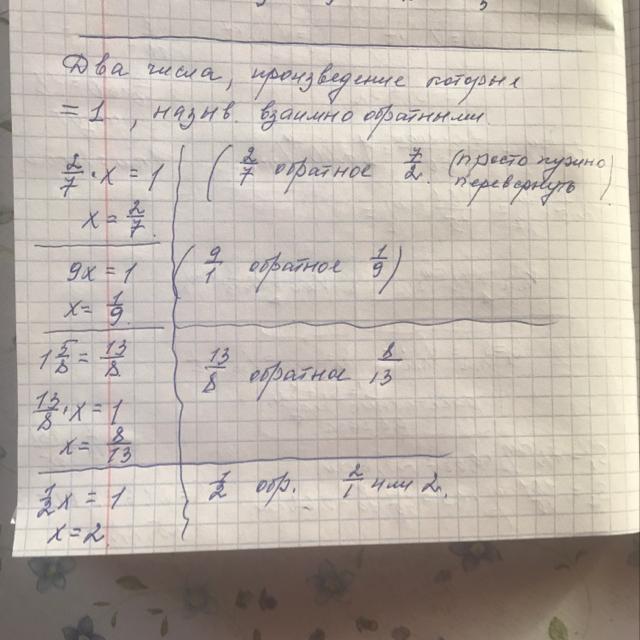 Два числа, произведение которые
= 1, назыв. взаимно обратными
2/7 · x = 1
x = 2/7.
(2/7 обратное 7/2. (просто нужно перевернуть)
9x = 1
x = 1/9.
(9/1 обратное 1/9)
1 5/8 = 13/8
13/8 · x = 1
x = 8/13
13/8 обратное 8/13
1/2 x = 1
x = 2
1/2 обр. 2/1 или 2.